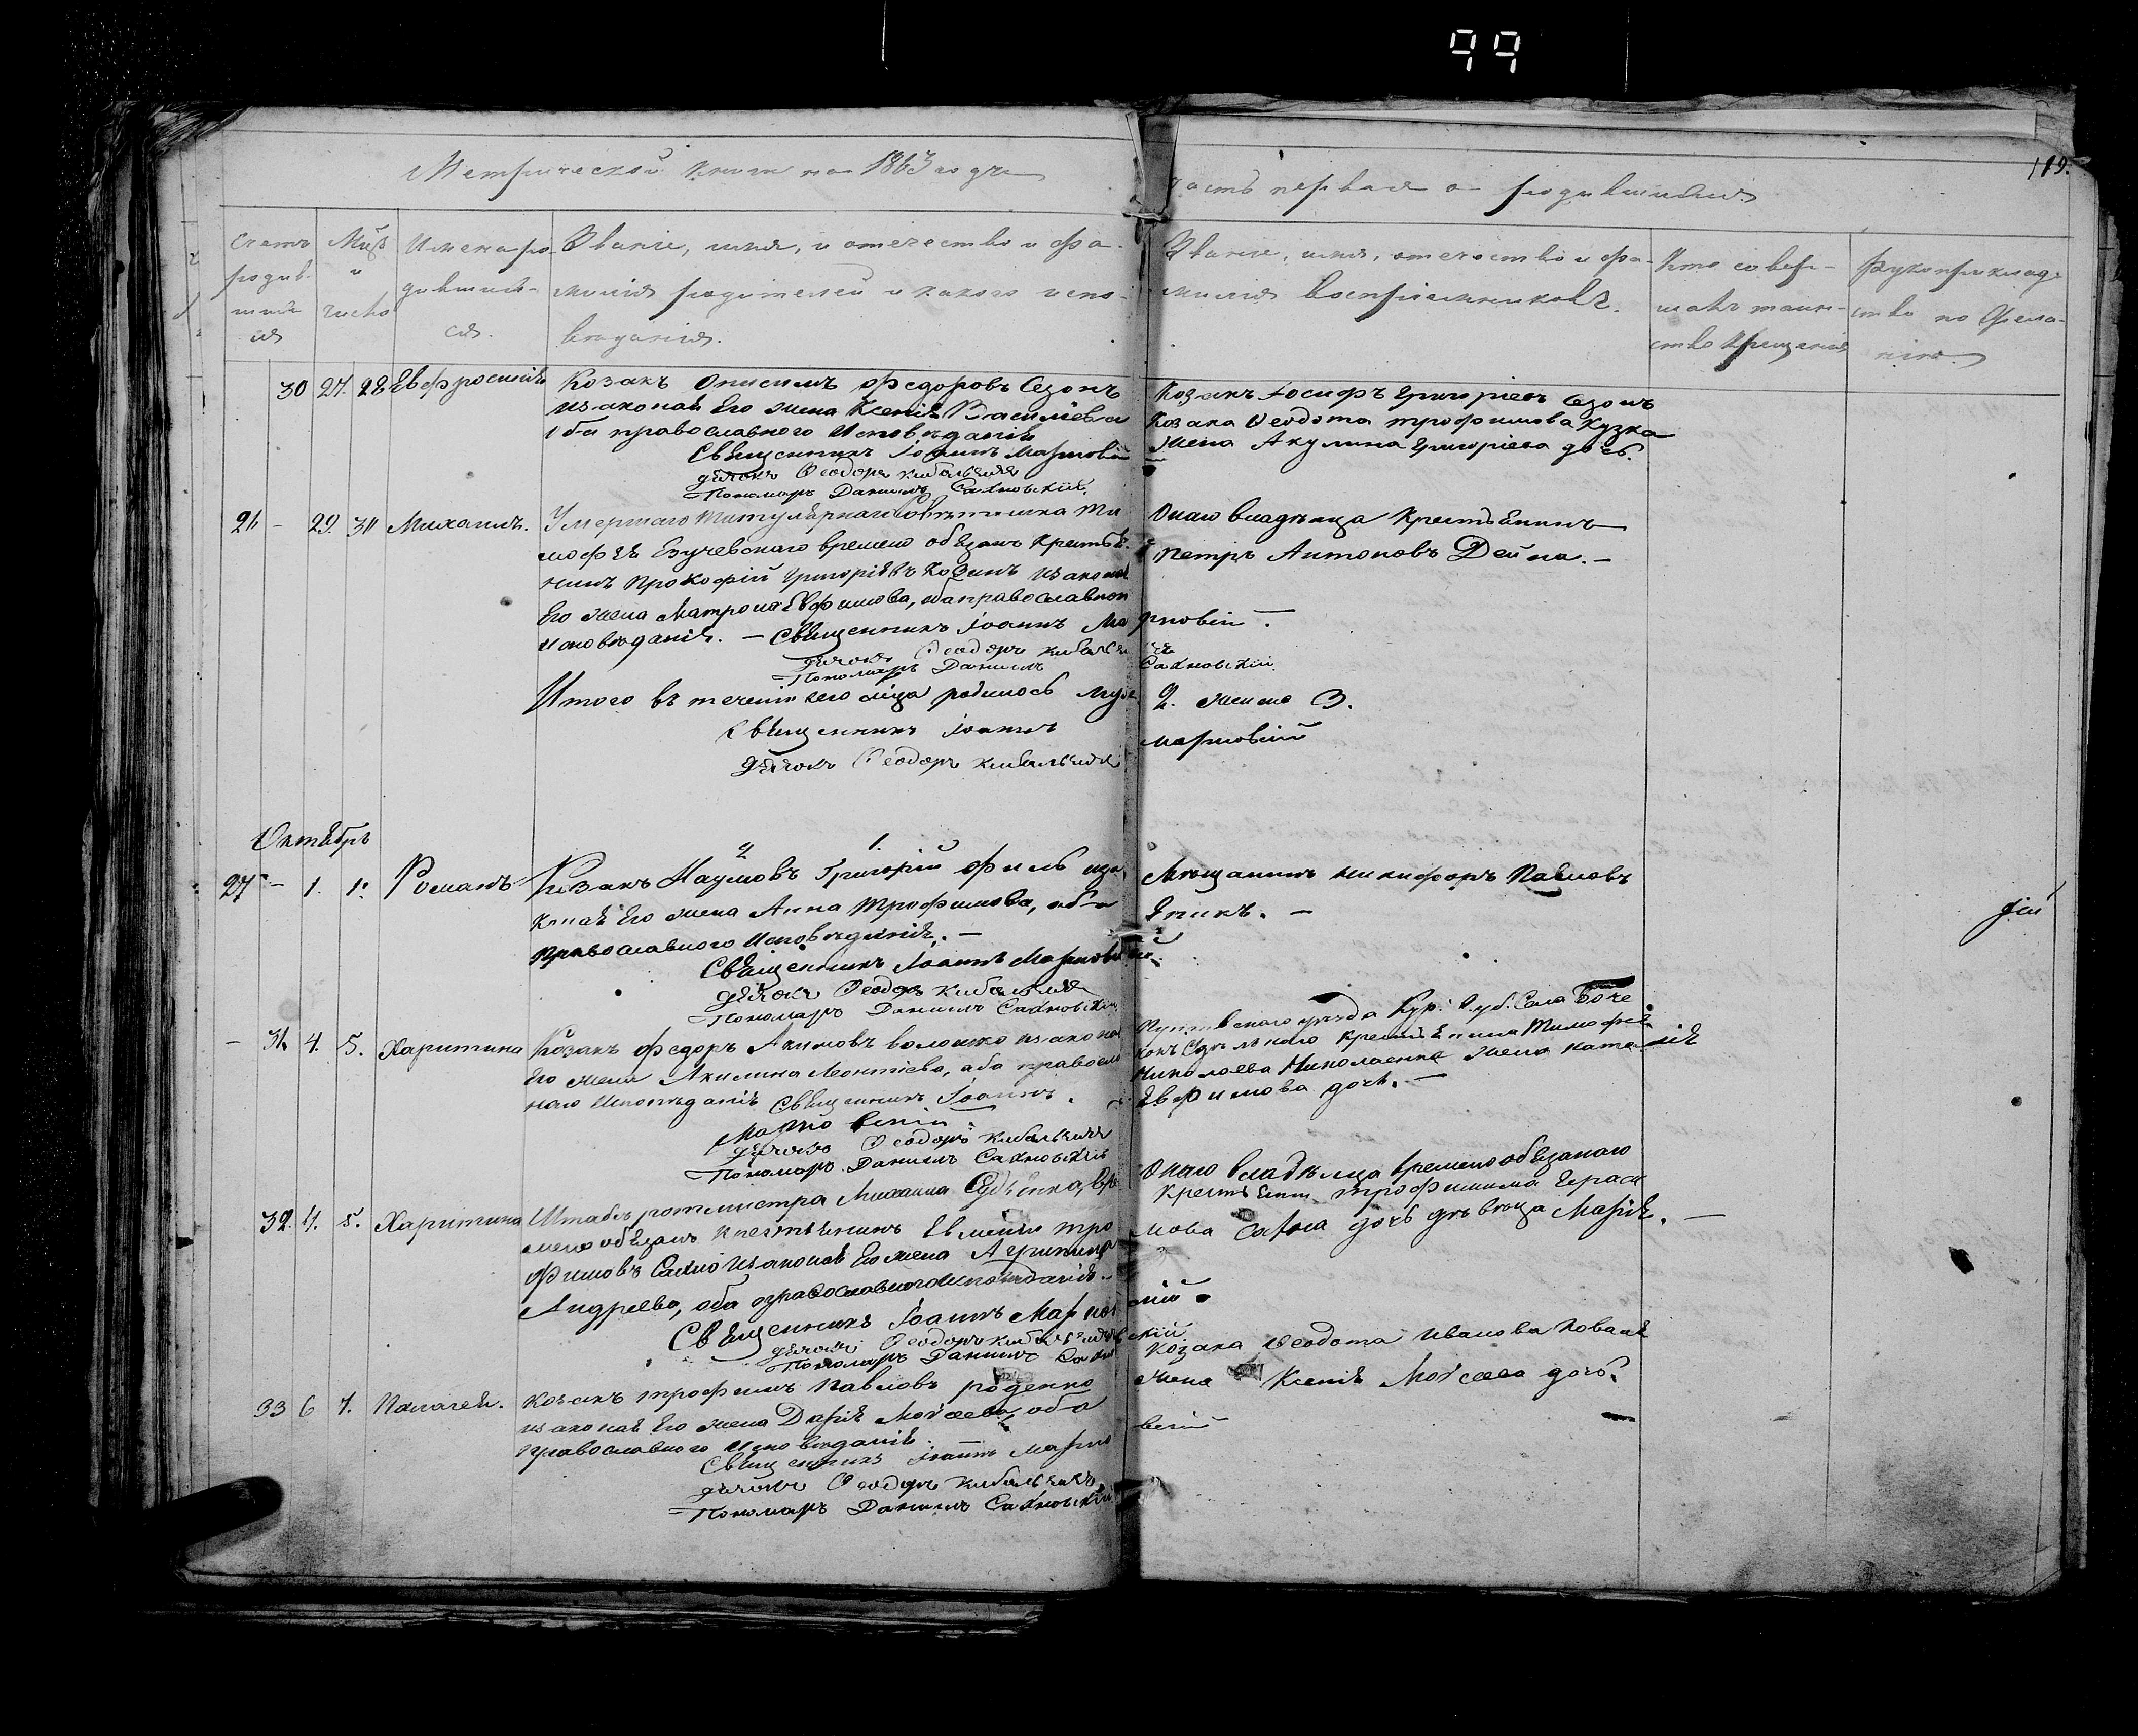 99
119.
Метрической книги на 1863 годъ
часть первая о родившихся
Счетъ родив-шихся
Мцъ и число
Имена ро-дивших-ся.
Званіе, имя, и отечество и фа-
милія родителей и какого испо-
вѣданія.
Званіе, имя, отечество и фа-
милія воспріемниковъ.
Кто совер-
шалъ таин-
ство крещенія
Рукоприклад-
ство по жела-
нію
30 27. 28 Евфросинія
Козакъ Онисимъ Федоровъ Сезонъ
изаконая Его жена Ксенія Василіева
оба православного Исповѣданія
Священникъ Іоаннъ
дячокъ Феодоръ Кибальчичъ
Пономаръ Даниилъ Сахновскій.
Козакъ Іосифъ Григоріевъ Сезонъ
Козака Феодота Трофимова Кузка
жена Акулина Григоріева дочь.
26 - 29. 30 Михаилъ.
Умершаго Титулярнаго Совѣтника Ти
мофѣя Езучевскаго времено обязан Крестья-
нинъ Прокофій Григоріевъ изаконая
Его жена Матрона Евфимова, оба православного
исповѣданія. — Священникъ Іоаннъ
дячокъ Феодоръ Кибальчичъ
Пономаръ Даниилъ Сахновскій
Онаго владѣльца Крестьянинъ
Петръ Антоновъ Дейна. —
Итого въ теченіи сего мца родилось муж. 2. женс 3.
Священникъ Іоаннъ
дячокъ Феодоръ Кибальчичъ
Октябрь
27 - 1. 1. Романъ
2 1.
Козакъ Наумовъ Григорій Филь иза
коная Его жена Анна Трофимова, оба
Православного Исповѣданія. —
Священникъ Іоаннъ
дячокъ Феодоръ Кибальчичъ
Пономаръ Даниилъ Сахновскій
Мѣщанинъ Никифоръ Павловъ
- 31. 4. 5. Харитина
Козакъ Федоръ Акимовъ Волошко изаконая
Его жена Акилина Леонтіева, оба православ
наго Исповѣданія Священникъ Іоаннъ
дячокъ Феодоръ Кибальчичъ
Пономаръ Даниилъ Сахновскій
Путивского уѣзда Кур. Губ. Села
Крестьянина Тимофея
Николаева Николаенка жена Наталія
Евфимова дочь. —
32. 4. 5. Харитина
Штабъ ротмистра Михаила Судіенка, вре
мено обязан Крестьянинъ Евмений Тро
фимовъ Сахно изаконая Его жена Агрипина
Андреева, оба православного исповѣданія.
Священникъ Іоаннъ
дячокъ Феодоръ Кибальчичъ
Пономаръ Даниилъ Сахновскій
Онаго владѣльца временообязанаго
Крестьянин Трофимима Гераси
мова Сахна дочь дѣвица Марія. —
33 6 7. Палагея.
Козакъ Трофимъ Павловъ Роденко
изаконая Его жена Дарія Моѵсеева, оба
Православного Исповѣданія.
Священникъ Іоаннъ
дячокъ Феодоръ Кибальчичъ
Пономаръ Даниилъ Сахновскій
Козака Феодота Иванова Коваля
жена Ксенія Моѵсеева дочь.